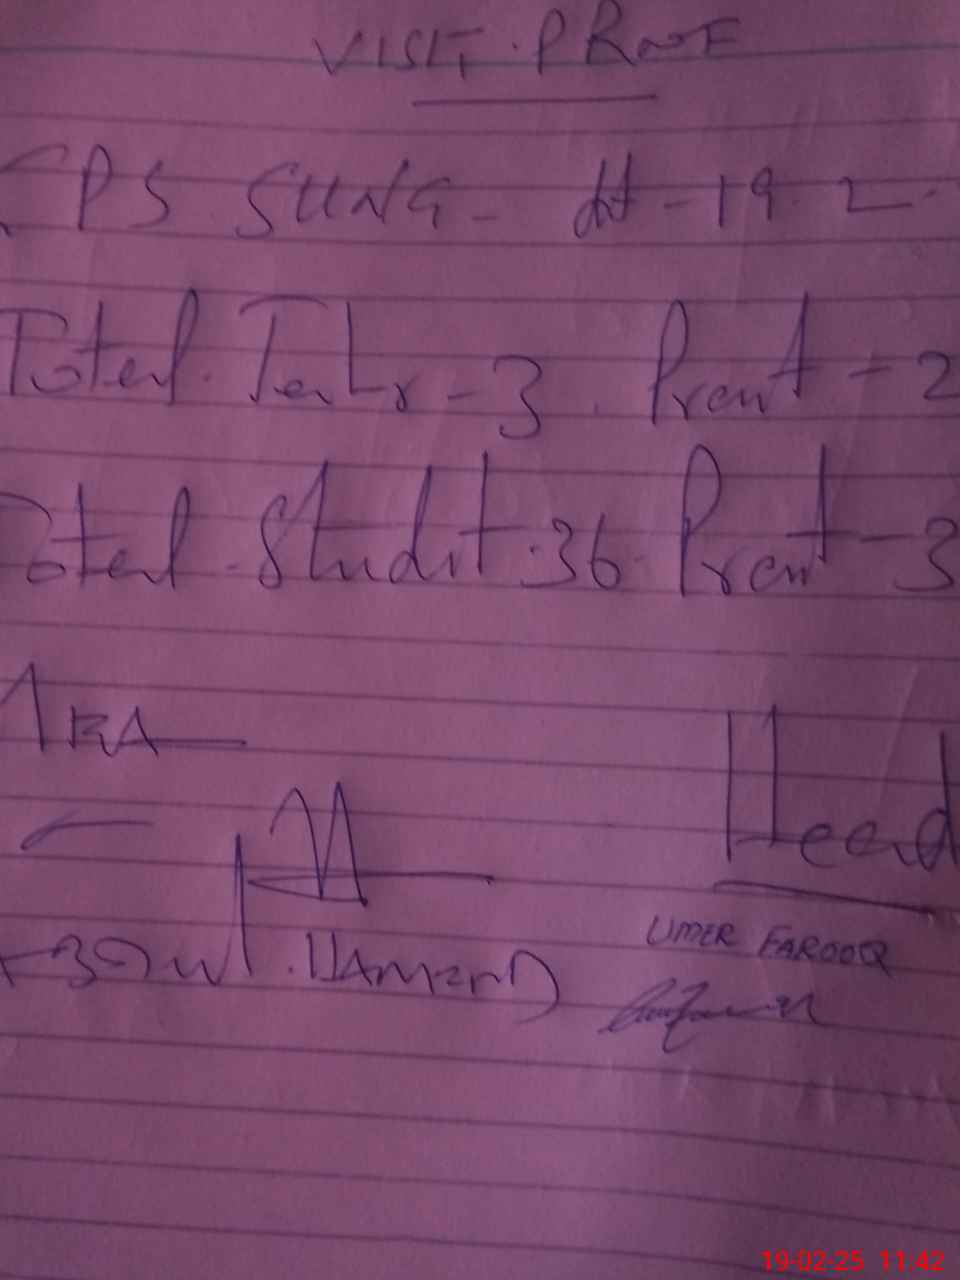 VISIT. PROOF
GPS SUNG - dt - 19. 2.
Total. Teahr - 3. Prent - 2
Total. Studnt. 36. Prent - 3
Head
UMER FAROOQ
HAMEED
19-02-25 11:42